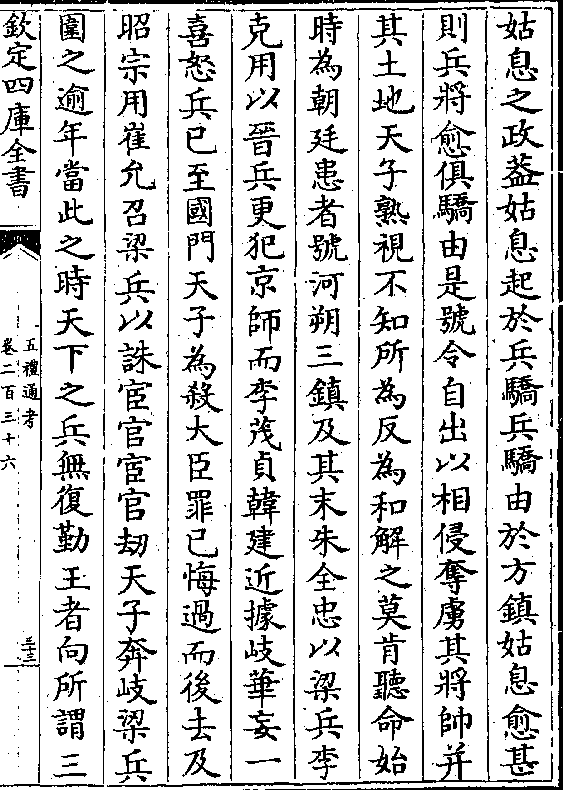 姑息之政葢姑息起於兵驕兵驕由於方鎮姑息愈甚
則兵將愈俱驕由是號令自出以相侵奪虜其將帥并
其土地天子熟視不知所為反為和解之莫肯聽命始
時為朝廷患者號河朔三鎮及其末朱全忠以梁兵李
克用以晉兵更犯京師而李茂貞韓建近據岐華妄一
喜怒兵已至國門天子為殺大臣罪已悔過而後去及
昭宗用崔允召梁兵以誅宦官宦官刼天子奔岐梁兵
圍之逾年當此之時天下之兵無復勤王者向所謂三
欽定四庫全書
五禮通考
卷二百三十六
三十三